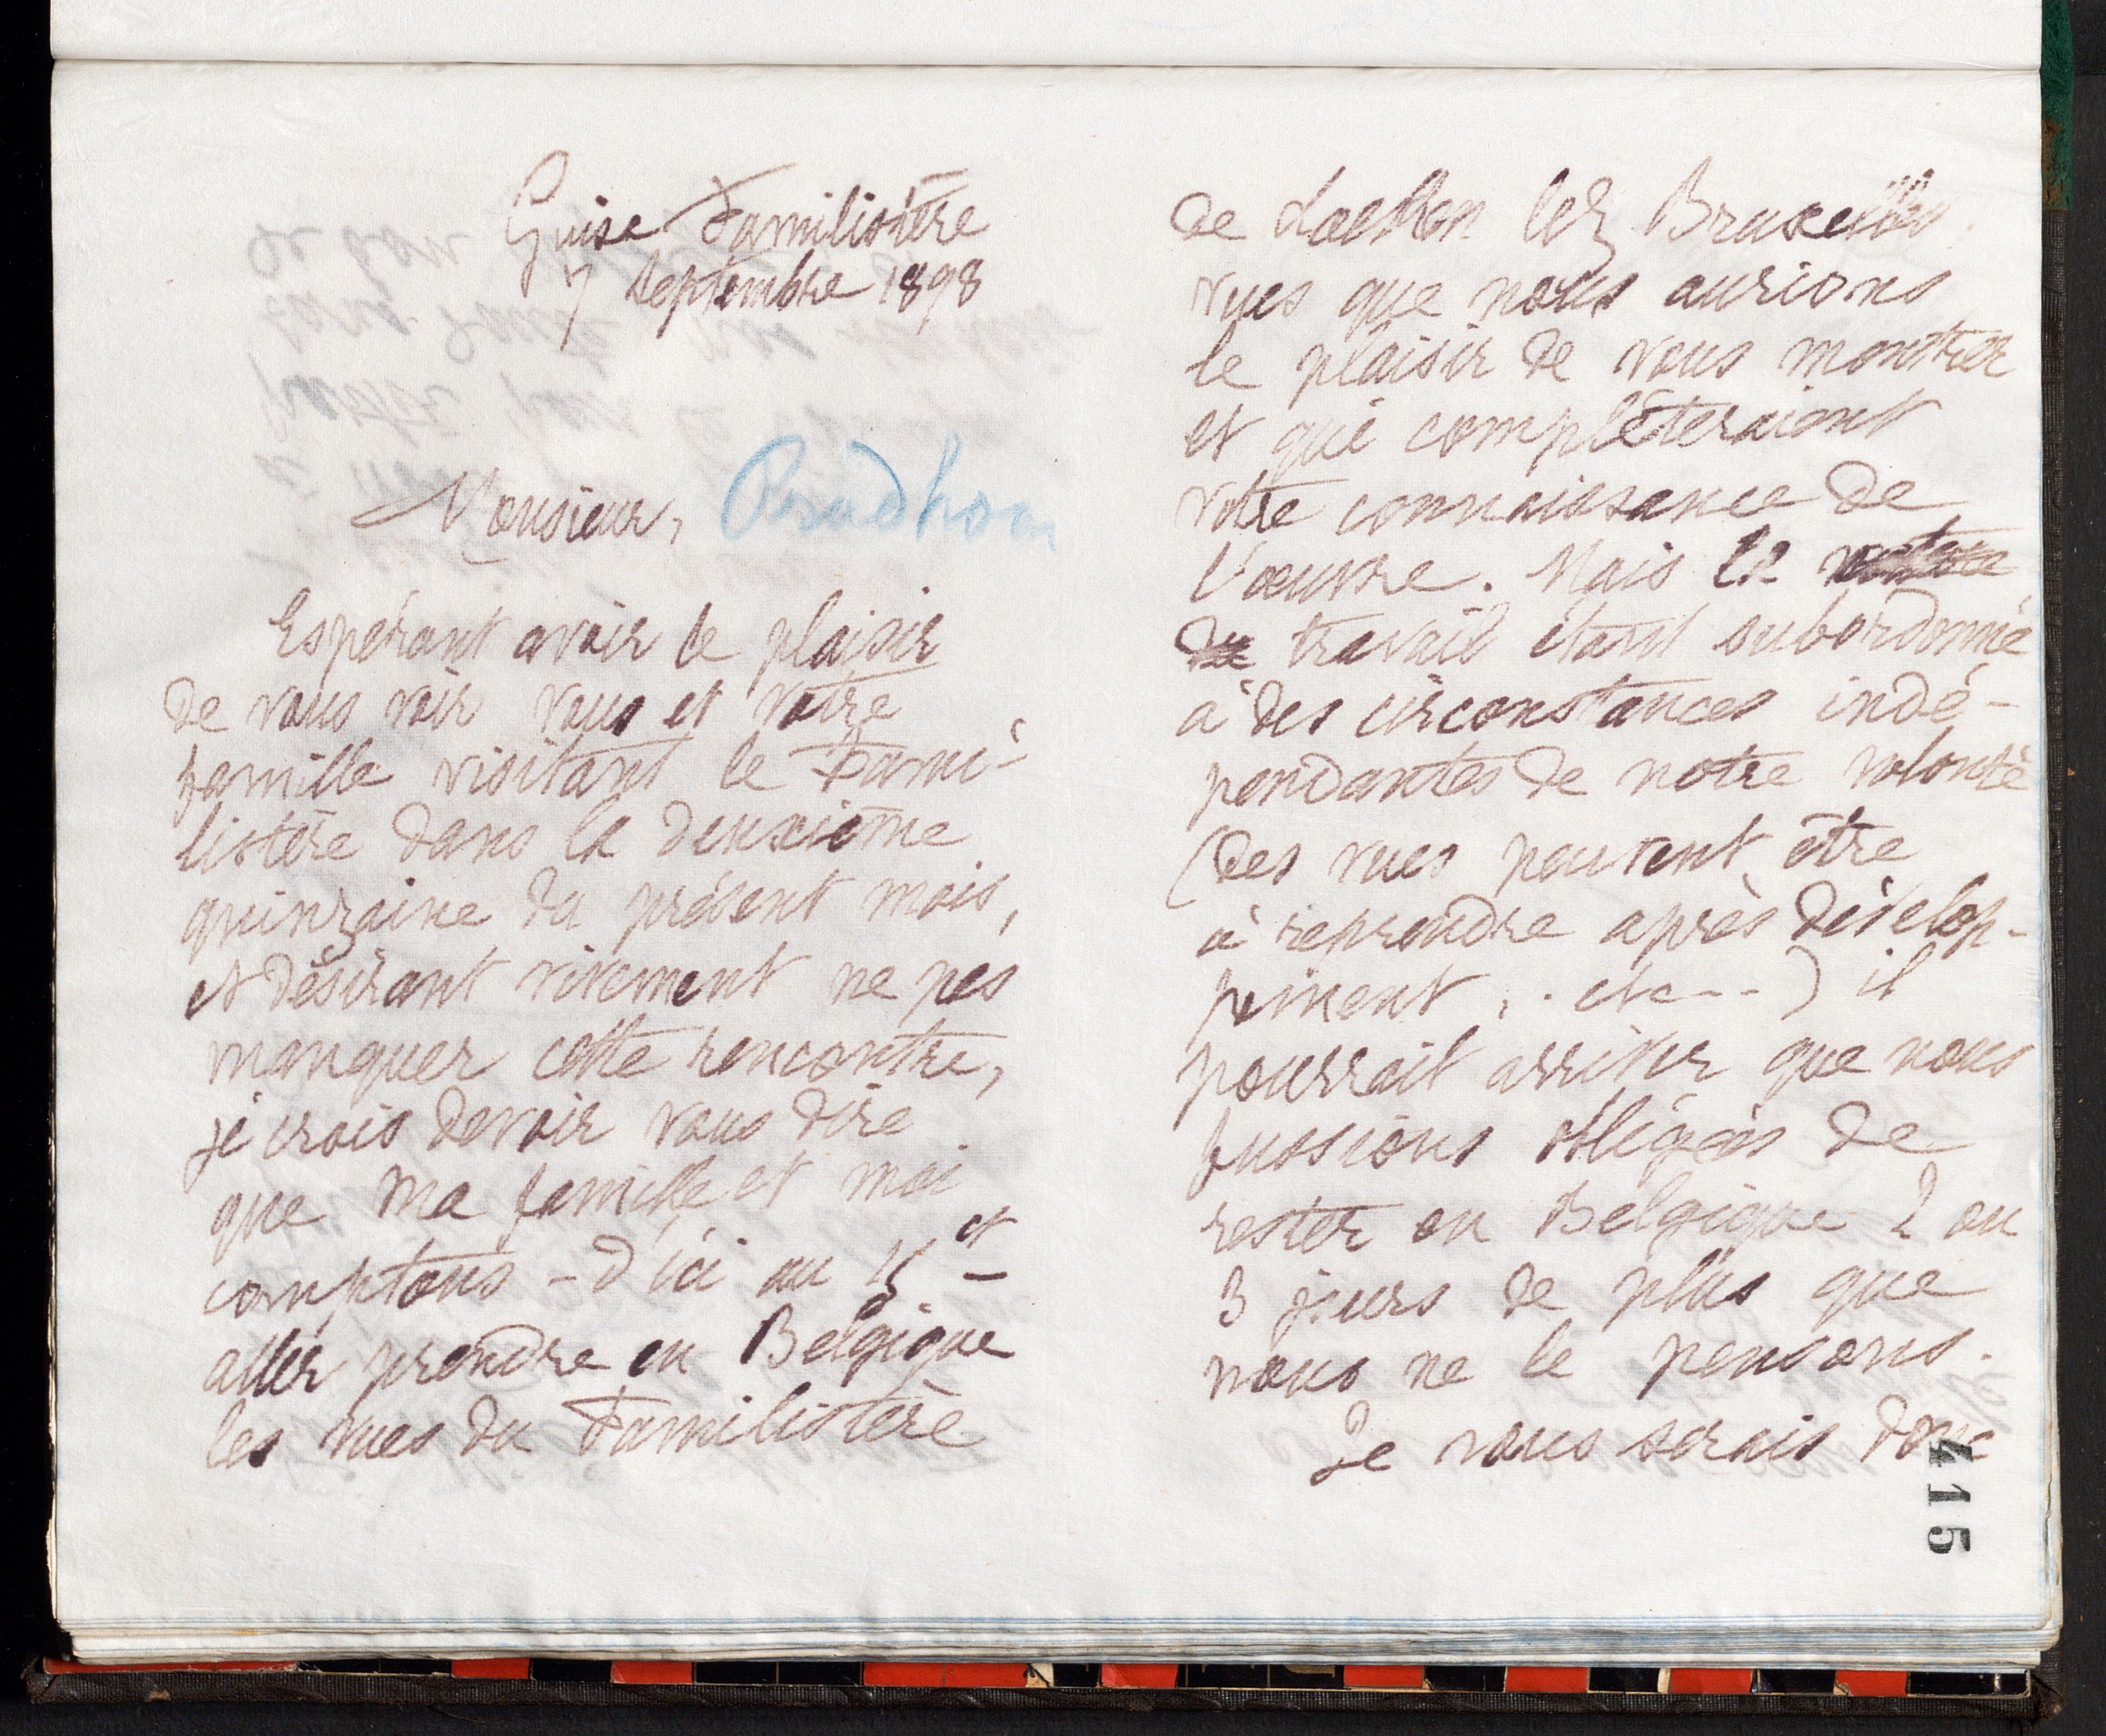 Guise Familistère
7 septembre 1898
Monsieur, Prudhom
Espérant avoir le plaisir
de vous voir vous et votre
famille visitant le Fami-
listère dans la deuxième
quinzaine du présent mois,
et désirant vivement ne pas
manquer cette rencontre,
je crois devoir vous dire
que ma famille et moi
comptons - d'ici au 15 ct -
aller prendre en Belgique
les vues du Familistère
de Laeken lez Bruxelles
vues que nous aurions
le plaisir de vous montrer
et qui complèteraient
votre connaissance de
l'œuvre. Mais le
travail étant subordonné
à des circonstances indé-
pendantes de notre volonté
(des vues peuvent être
à reprendre après dévelop-
pement, . etc--) il
pourrait arriver que nous
fussions obligés de
rester en Belgique 2 ou
3 jours de plus que
nous ne le pensons.
Je vous serais donc
415